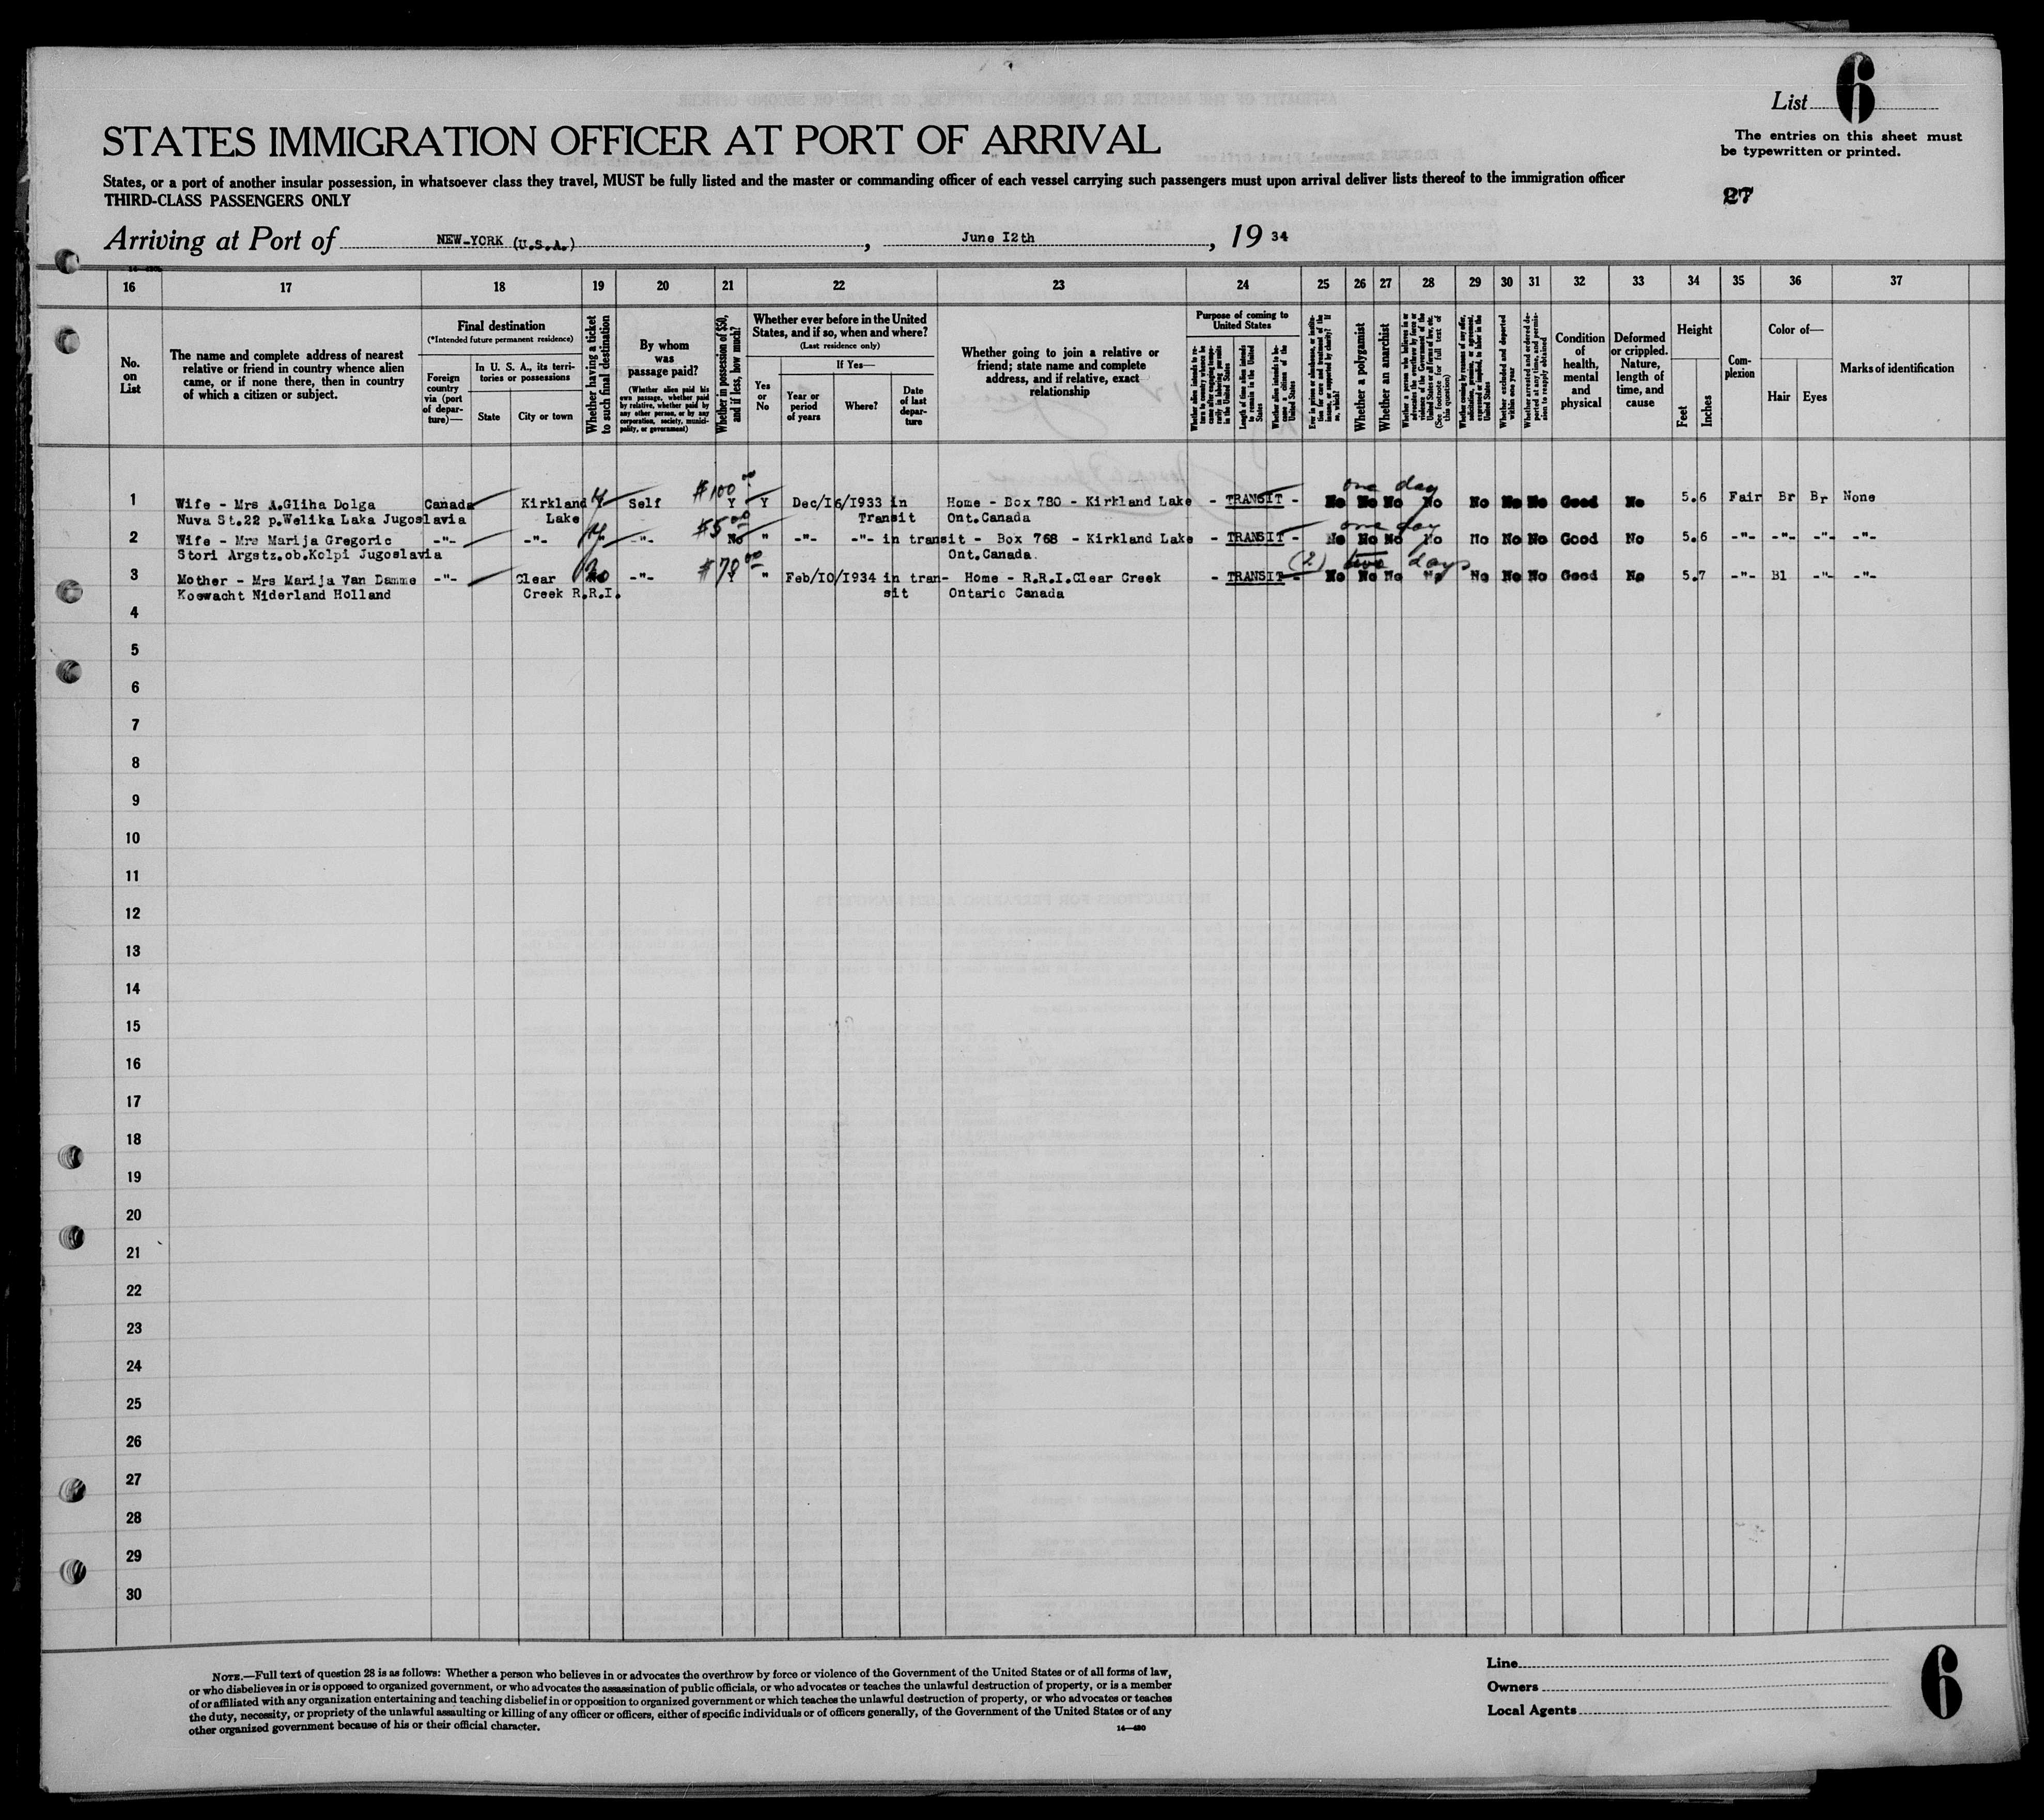 List 6
The entries on this sheet must
be typewritten or printed.
STATES IMMIGRATION OFFICER AT PORT OF ARRIVAL
States, or a port of another insular possession, in whatsoever class they travel, MUST be fully listed and the master or commanding officer of each vessel carrying such passengers must upon arrival deliver lists thereof to the immigration officer
THIRD-CLASS PASSENGERS ONLY
27
Arriving at Port of NEW-YORK (U.S.A.), June I2th, 19 34
16 17 18 19 20 21 22 23 24 25 26 27 28 29 30 31 32 33 34 35 36 37
No.
on
List
The name and complete address of nearest
relative or friend in country whence alien
came, or if none there, then in country
of which a citizen or subject.
Final destination
(*Intended future permanent residence)
Foreign
country
via (port
of depar-
ture)—
In U. S. A., its terri-
tories or possessions
State
City or town
Whether having a ticket
to such final destination
By whom
was
passage paid?
(Whether alien paid his
own passage, whether paid
by relative, whether paid by
any other person, or by any
corporation, society, munici-
pality, or government)
Whether in possession of $50,
and if less, how much?
Whether ever before in the United
States, and if so, when and where?
(Last residence only)
Yes
or
No
If Yes—
Year or
period
of years
Where?
Date
of last
depar-
ture
Whether going to join a relative or
friend; state name and complete
address, and if relative, exact
relationship
Purpose of coming to
United States
Whether alien intends to re-
turn to country whence he
came after engaging tempo-
rarily in laboring pursuits
in the United States
Length of time alien intends
to remain in the United
States
Whether alien intends to be-
come a citizen of the
United States
Ever in prison or almshouse, or institu-
tion for care and treatment of the
insane, or supported by charity? If
so, which?
Whether a polygamist
Whether an anarchist
Whether a person who believes in or
advocates the overthrow by force or
violence of the Government of the
United States or all forms of law, etc.
(See footnote for full text of
this question)
Whether coming by reason of any offer,
solicitation, promise, or agreement,
expressed or implied, to labor in the
United States
Whether excluded and deported
within one year
Whether arrested and ordered de-
ported at any time, and permis-
sion to reapply obtained
Condition
of
health,
mental
and
physical
Deformed
or crippled.
Nature,
length of
time, and
cause
Height
Feet
Inches
Com-
plexion
Color of—
Hair
Eyes
Marks of identification
$100 00 one day
1 Wife - Mrs A.Gliha Dolga Canada Kirkland y Self Y Y Dec/I6/I933 in Home - Box 780 - Kirkland Lake - TRANSIT - No No No No No No No Good No 5.6 Fair Br Br None
Nuva St.22 p.Welika Laka Jugoslavia Lake Transit Ont.Canada
$5 00 one day
2 Wife - Mrs Marija Gregoric -"- -"- y -"- No " -"- -"- in transit - Box 768 - Kirkland Lake - TRANSIT - No No No No No No No Good No 5.6 -"- -"- -"- -"-
Stori Argstz.ob.Kolpi Jugoslavia Ont.Canada.
$70 00 (2) two days
3 Mother - Mrs Marija Van Damme -"- Clear No -"- " Feb/I0/I934 in tran- Home - R.R.I.Clear Creek - TRANSIT - No No No No No No No Good No 5.7 -"- Bl -"- -"-
Koewacht Niderland Holland Creek R.R.I. sit Ontario Canada
4
5
6
7
8
9
10
11
12
13
14
15
16
17
18
19
20
21
22
23
24
25
26
27
28
29
30
NOTE.—Full text of question 28 is as follows: Whether a person who believes in or advocates the overthrow by force or violence of the Government of the United States or of all forms of law,
or who disbelieves in or is opposed to organized government, or who advocates the assassination of public officials, or who advocates or teaches the unlawful destruction of property, or is a member
of or affiliated with any organization entertaining and teaching disbelief in or opposition to organized government or which teaches the unlawful destruction of property, or who advocates or teaches
the duty, necessity, or propriety of the unlawful assaulting or killing of any officer or officers, either of specific individuals or of officers generally, of the Government of the United States or of any
other organized government because of his or their official character.
14—430
Line
Owners
Local Agents
6